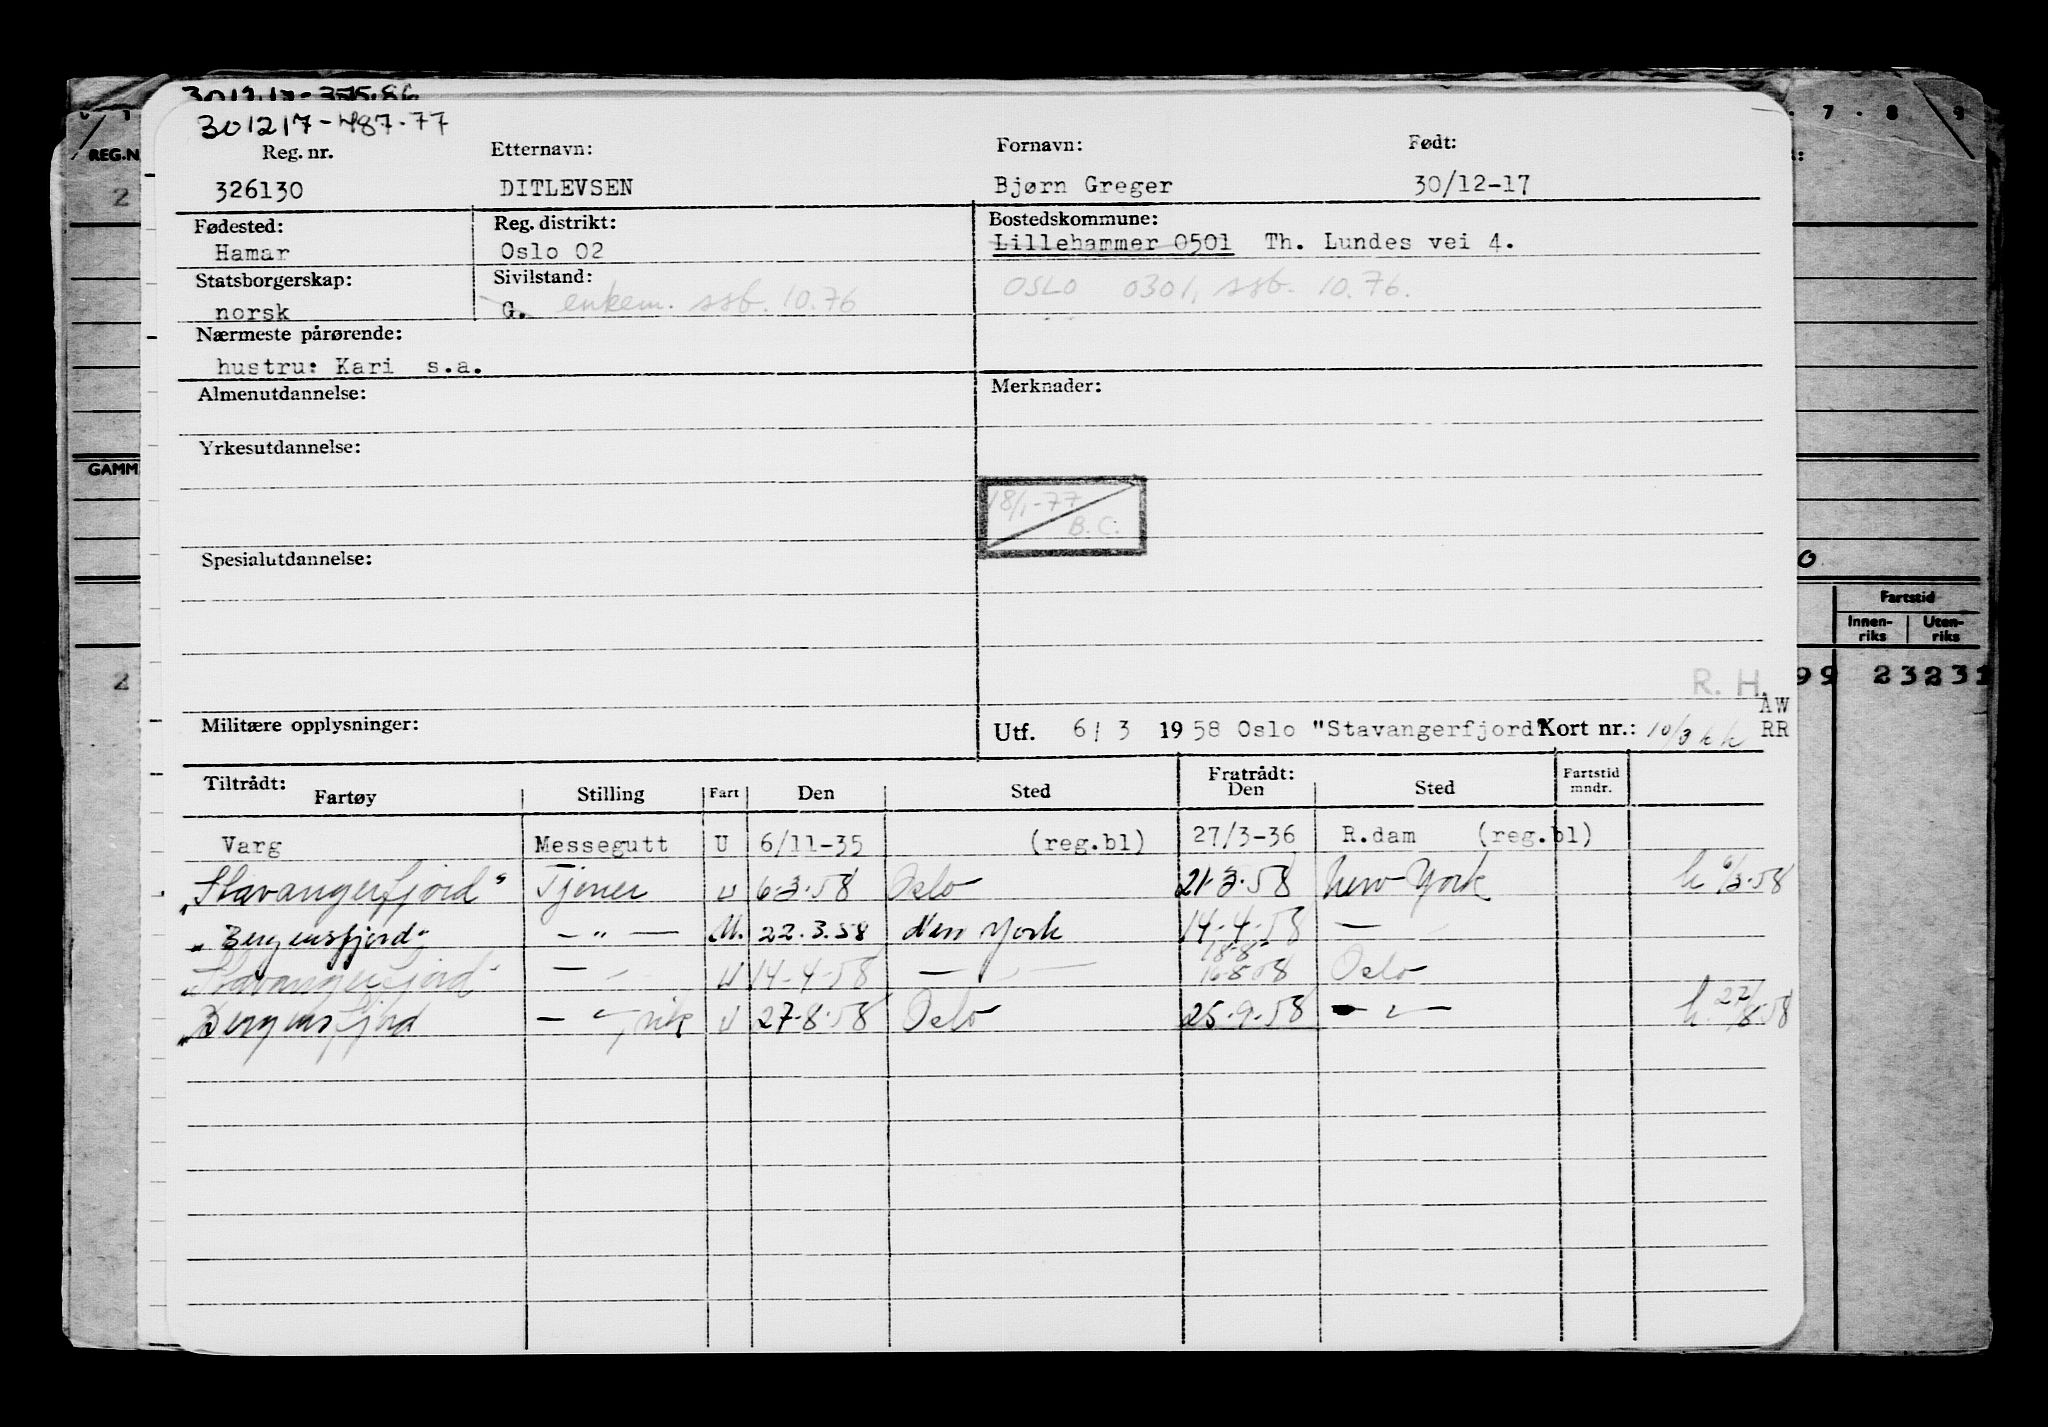 301217-375.86
301217-487.77
7 . 8 . 9
REG.N
Reg. nr. Etternavn: Fornavn: Født:
326130 DITLEVSEN Bjørn Greger 30/12-17
2
Fødested: Reg. distrikt: Bostedskommune:
Hamar Oslo 02 Lillehammer 0501 Th. Lundes vei 4.
Statsborgerskap: Sivilstand: OSLO 0301, ssb. 10.76.
norsk G. enkem. ssb. 10.76
Nærmeste pårørende:
hustru: Kari s.a.
Almenutdannelse: Merknader:
Yrkesutdannelse:
GAMM
18/1-77
B.C.
Spesialutdannelse:
0
Fartstid
Innen-riks Uten-riks
2 99 23231
R. H.
AW
Militære opplysninger: Utf. 6/ 3 1958 Oslo "Stavangerfjord" Kort nr.: 10/3 RR
Tiltrådt: Fratrådt:
Fartøy Stilling Fart Den Sted Den Sted Fartstid mndr.
Varg Messegutt U 6/11-35 (reg.bl) 27/3-36 R.dam (reg.bl)
"Stavangerfjord" Tjener U 6-3-58 Oslo 21-3-58 New York 6/3-58
"Bergensfjord" — " — U. 22.3.58 New York 14-4-58 —
"Stavangerfjord" — " U 14-4-58 — " — 18-8 16-8-58 Oslo
"Bergensfjord — " — U 27-8-58 Oslo 25-9-58 — " — 27/8-58